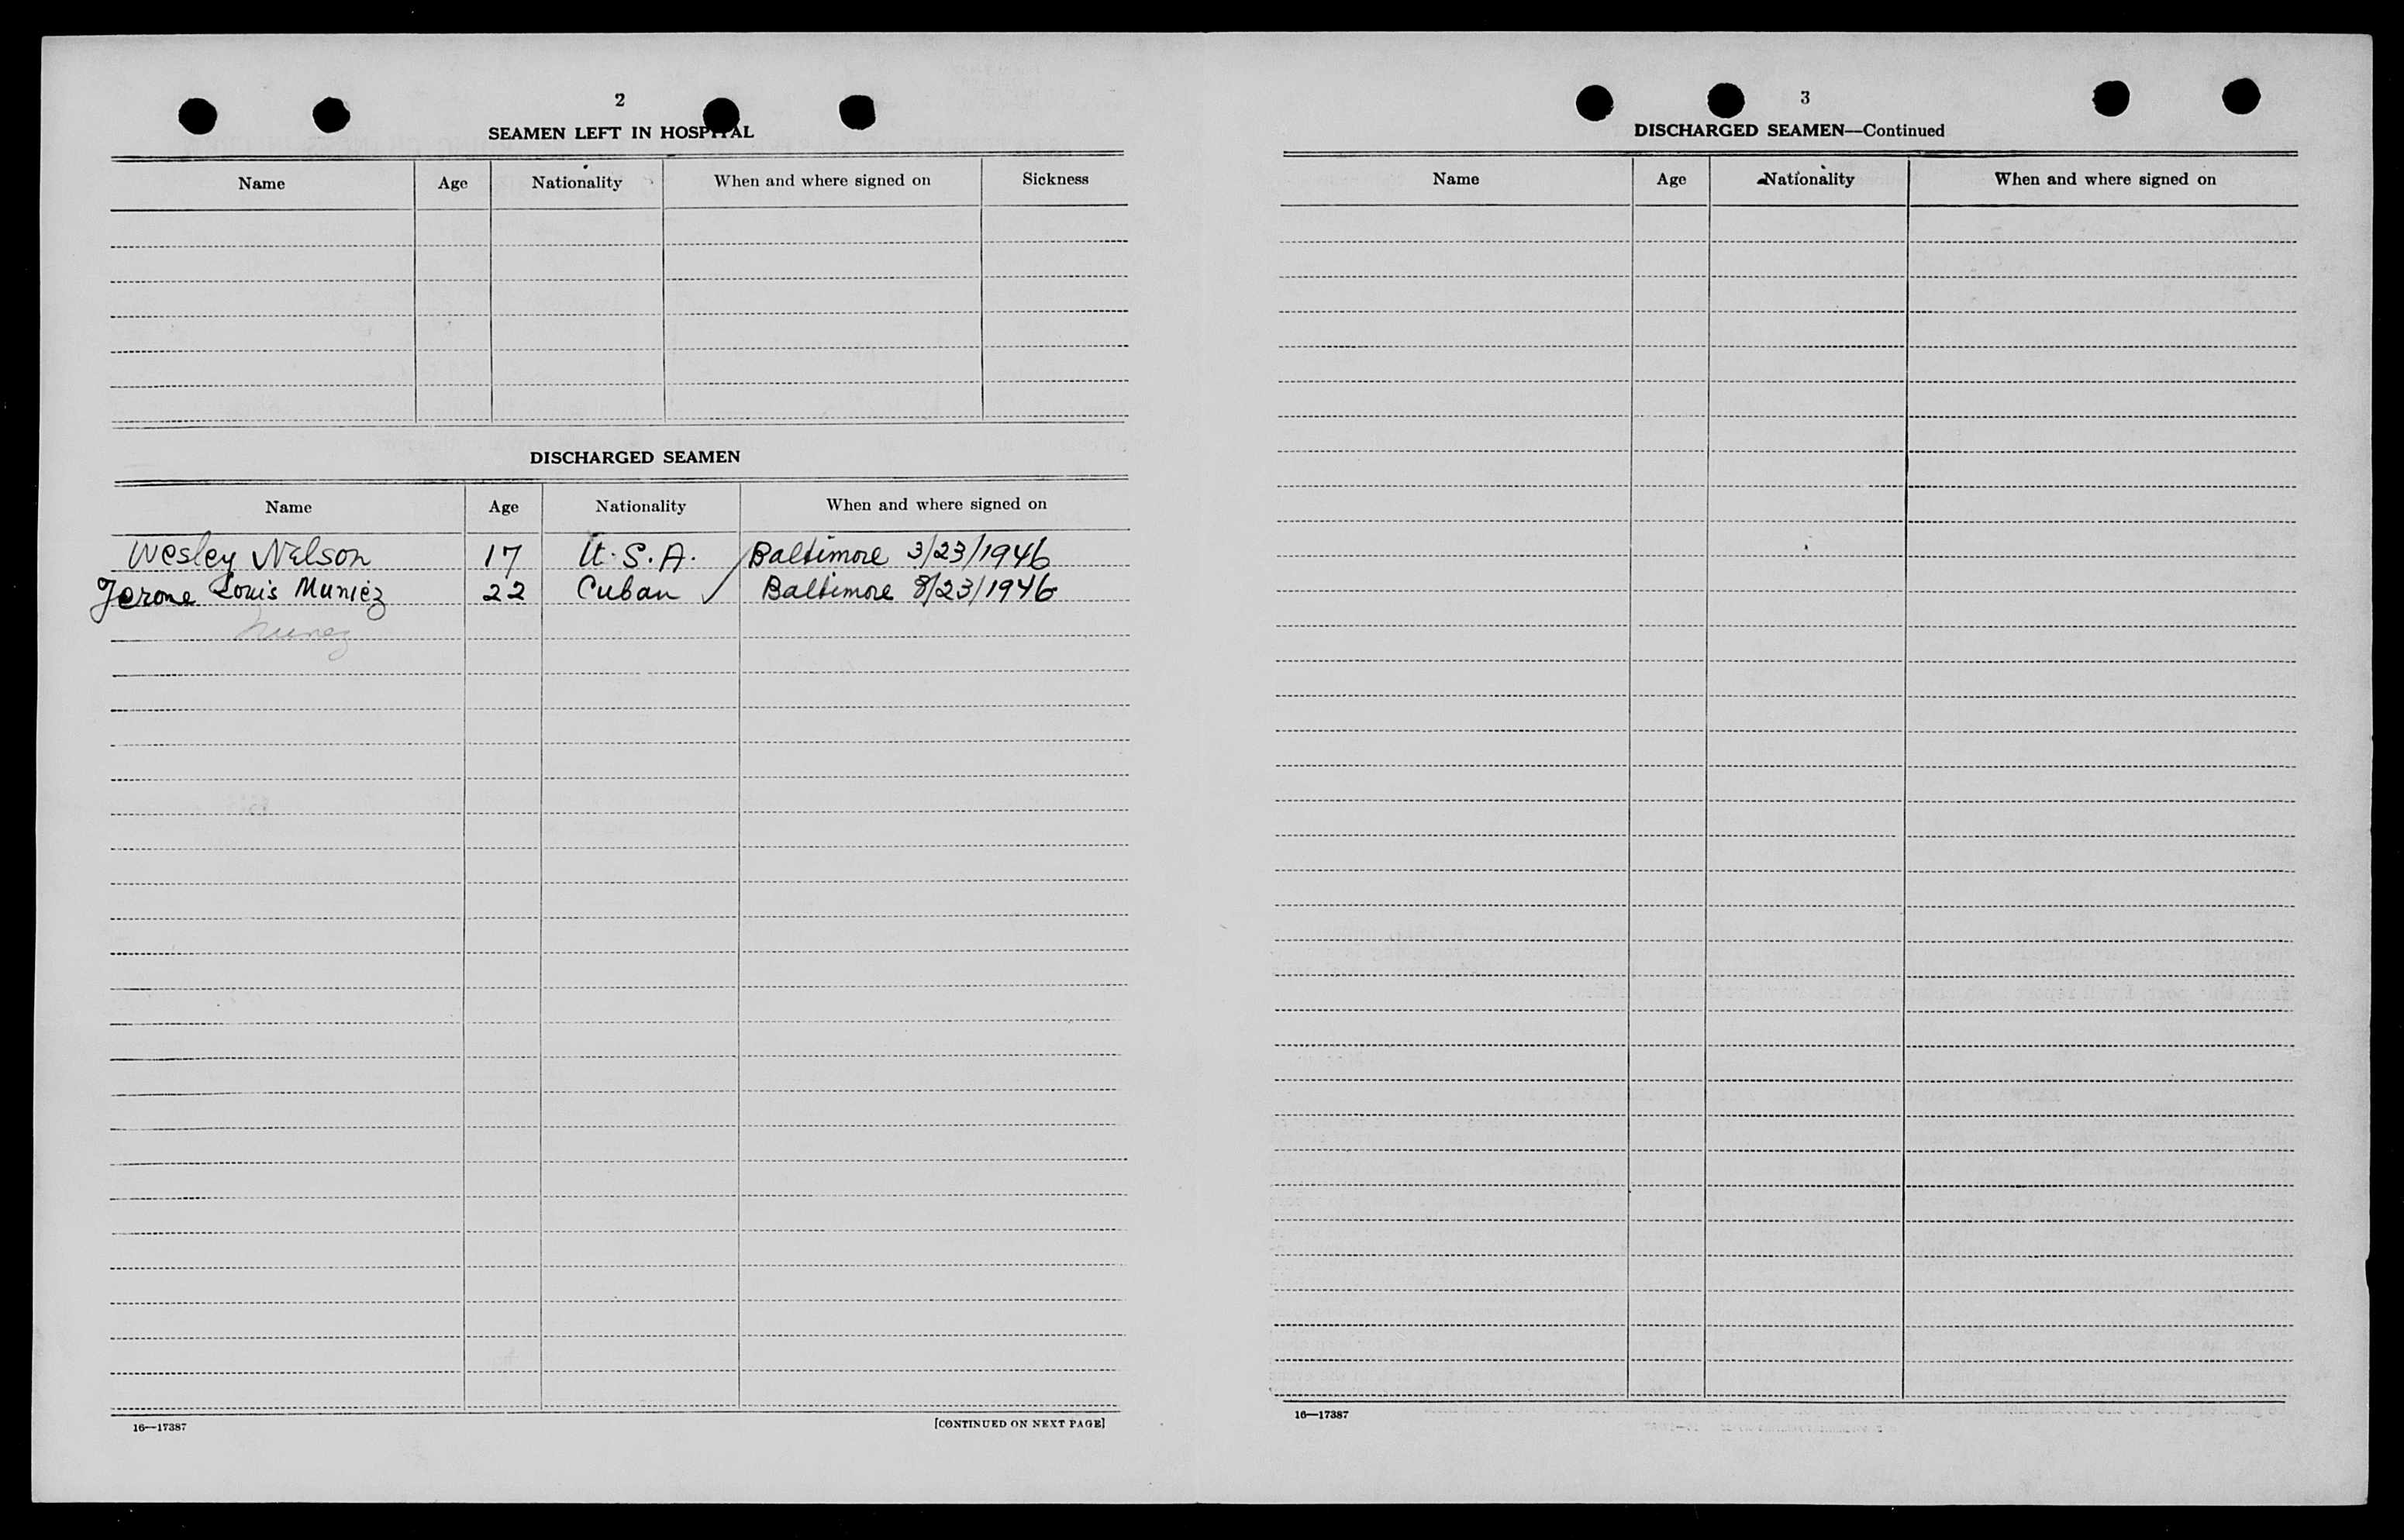 2
SEAMEN LEFT IN HOSPITAL
Name Age Nationality When and where signed on Sickness
DISCHARGED SEAMEN
Name Age Nationality When and where signed on
Wesley Nelson 17 U.S.A. Baltimore 3/23/1946
Jerone Louis Muniez 22 Cuban ✓ Baltimore 3/23/1946
Nunez
16—17387 [CONTINUED ON NEXT PAGE]
3
DISCHARGED SEAMEN—Continued
Name Age Nationality When and where signed on
16—17387